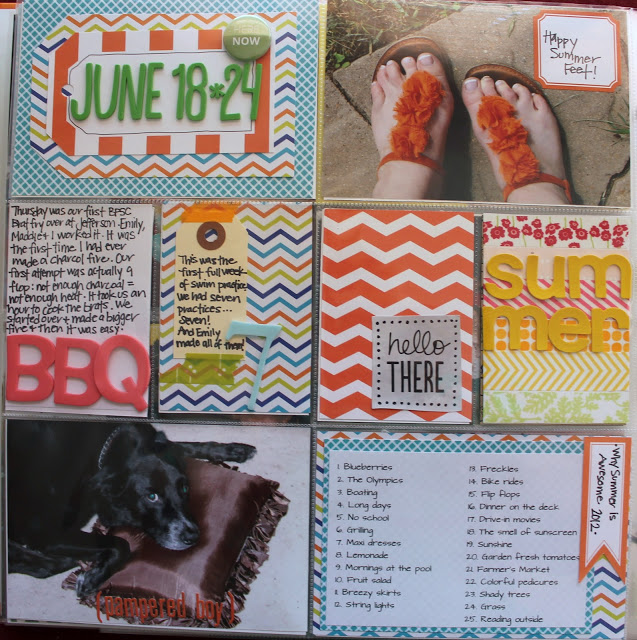 NOW
JUNE 18*24
Happy
Summer
Feet!
Thursday was our first BPSC
Brat fry over at Jefferson. Emily,
Maddie & I worked it. It was
the first time I had ever
made a charcol fire. Our
first attempt was actually a
flop: not enough charcoal =
not enough heat. It took us an
hour to cook the brats. We
started over & made a bigger
fire & then it was easy.
BBQ
This was the
first full week
of swim practice.
We had seven
practices...
Seven!
And Emily
made all of them!
7
hello
THERE
sum
mer
(pampered boy)
1. Blueberries
2. The Olympics
3. Boating
4. Long days
5. No school
6. Grilling
7. Maxi dresses
8. Lemonade
9. Mornings at the pool
10. Fruit salad
11. Breezy skirts
12. String lights
13. Freckles
14. Bike rides
15. Flip flops
16. Dinner on the deck
17. Drive-in movies
18. The smell of sunscreen
19. Sunshine
20. Garden fresh tomatoes
21. Farmer's Market
22. Colorful pedicures
23. Shady trees
24. Grass
25. Reading outside
Why Summer Is
Awesome 2012